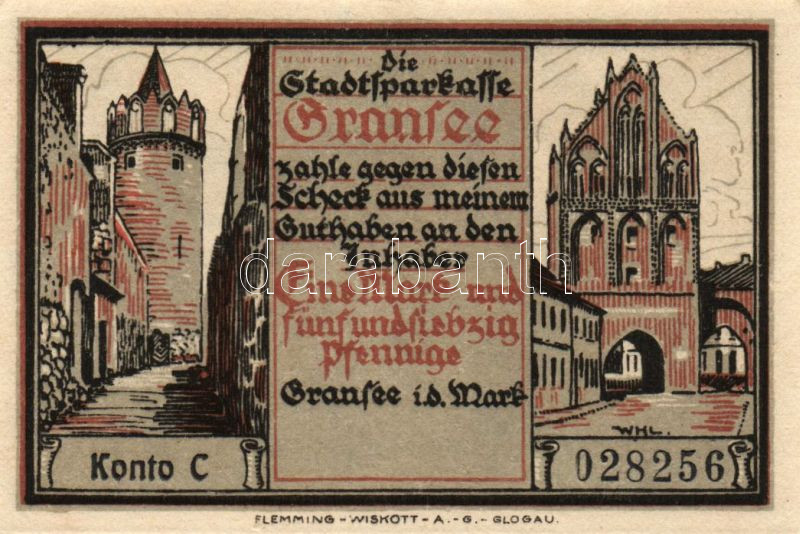 Die
Stadtsparkasse
Gransee
zahle gegen diesen
Scheck aus meinem
Guthaben an den
Inhaber
Eine Mark und
fünfundsiebzig
Pfennige
Gransee i.d. Mark
Konto C
W.H.L.
028256
FLEMMING - WISKOTT - A. - G. - GLOGAU.
darabanth